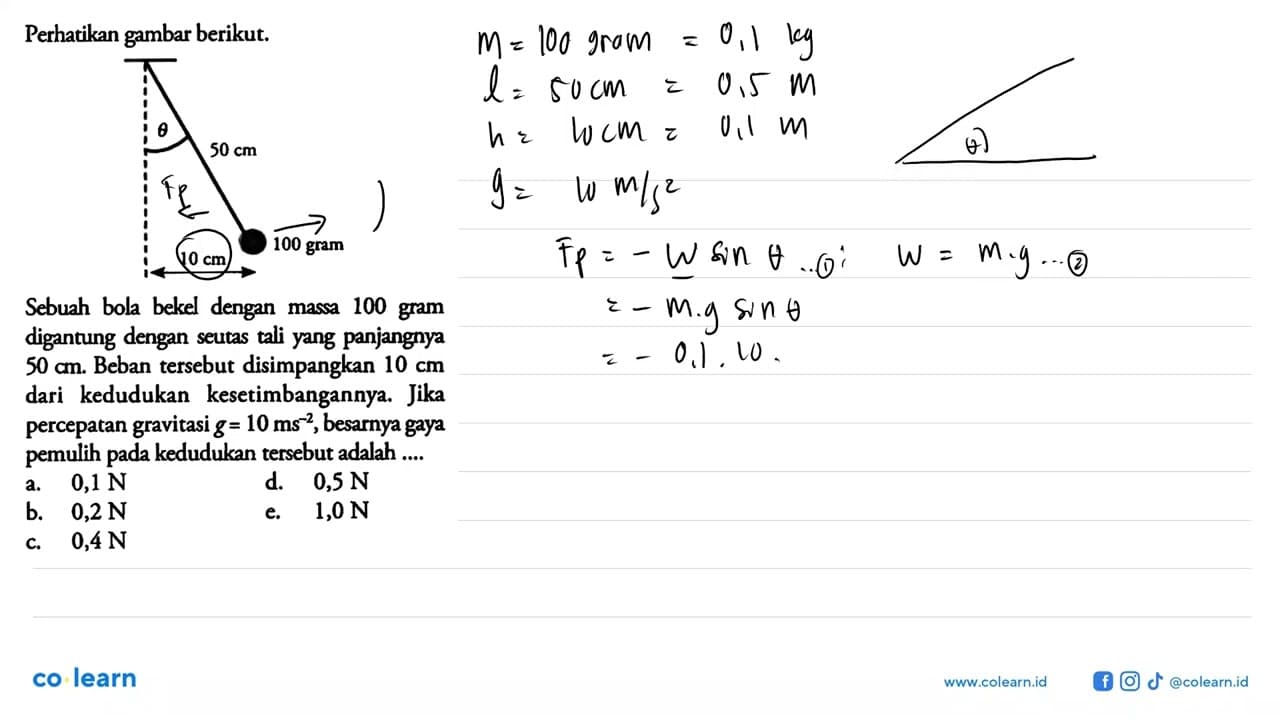 Perhatikan gambar berikut.
θ
50 cm
Fp
10 cm
100 gram
Sebuah bola bekel dengan massa 100 gram
digantung dengan seutas tali yang panjangnya
50 cm. Beban tersebut disimpangkan 10 cm
dari kedudukan kesetimbangannya. Jika
percepatan gravitasi g = 10 ms⁻², besarnya gaya
pemulih pada kedudukan tersebut adalah ....
a. 0,1 N
b. 0,2 N
c. 0,4 N
d. 0,5 N
e. 1,0 N
m = 100 gram = 0,1 kg
l = 50 cm = 0,5 m
h = 10 cm = 0,1 m
g = 10 m/s²
θ
Fp = - W sin θ ..①; W = m.g ...②
= - m.g sin θ
= - 0,1 . 10 .
co·learn
www.colearn.id
@colearn.id